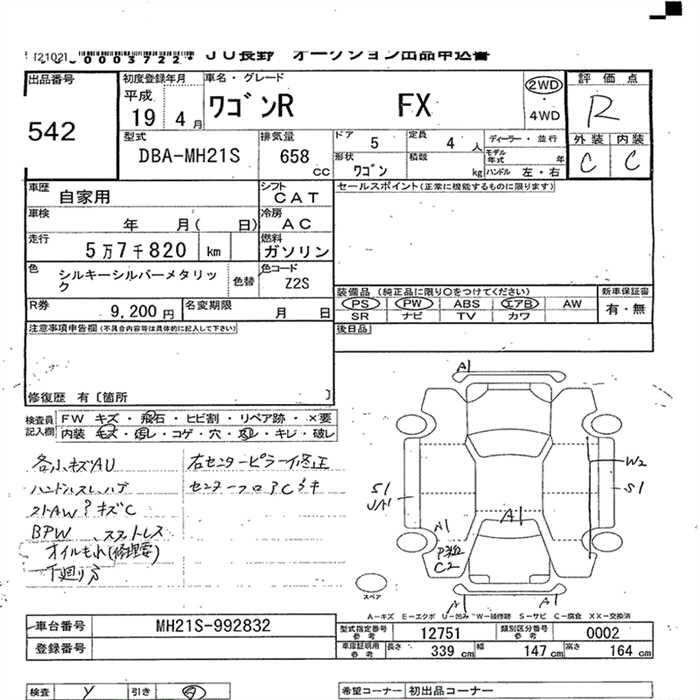 (2102) 0003722 JU長野 オークション出品申込書
出品番号 初度登録年月 車名・グレード 評価点
542 平成 19 4月 ワゴンR FX 2WD ・ 4WD R
型式 排気量 ドア 5 定員 4人 ディーラー・並行 外装 内装
DBA-MH21S 658 cc 形状 ワゴン 積載 kg モデル年式 年 ハンドル 左・右 C C
車歴 自家用 シフト CAT セールスポイント(正常に機能するものに限ります)
車検 年 月( 日) 冷房 AC
走行 5万7千820 km 燃料 ガソリン
色 シルキーシルバーメタリック 色替 色コード Z2S
装備品 (純正品に限り○をつけてください) 新車保証書
R券 9,200円 名変期限 月 日 PS PW ABS エアB AW 有・無
SR ナビ TV カワ
注意事項申告欄(不具合内容等は具体的に記入して下さい) 後日品
修復歴 有〔箇所 〕
検査員記入欄 FW キズ・飛石・ヒビ割・リペア跡・×要
内装 キズ・汚レ・コゲ・穴・スレ・キレ・破レ
各小キズAU 右センターピラー修正
センターフロアCキ
BPW
オイルもれ(修理要)
下廻りサ
A1
W2
S1
S1
A1
A1
C2
A1
A1
スペア
A-キズ E-エクボ U-凹み W-補修跡 S-サビ C-腐食 XX-交換済
車台番号 MH21S-992832 型式指定番号 参考 12751 類別区分番号 参考 0002
登録番号 車庫証明用 参考 長さ 339 cm 幅 147 cm 高さ 164 cm
検査 Y 引き 希望コーナー 初出品コーナー